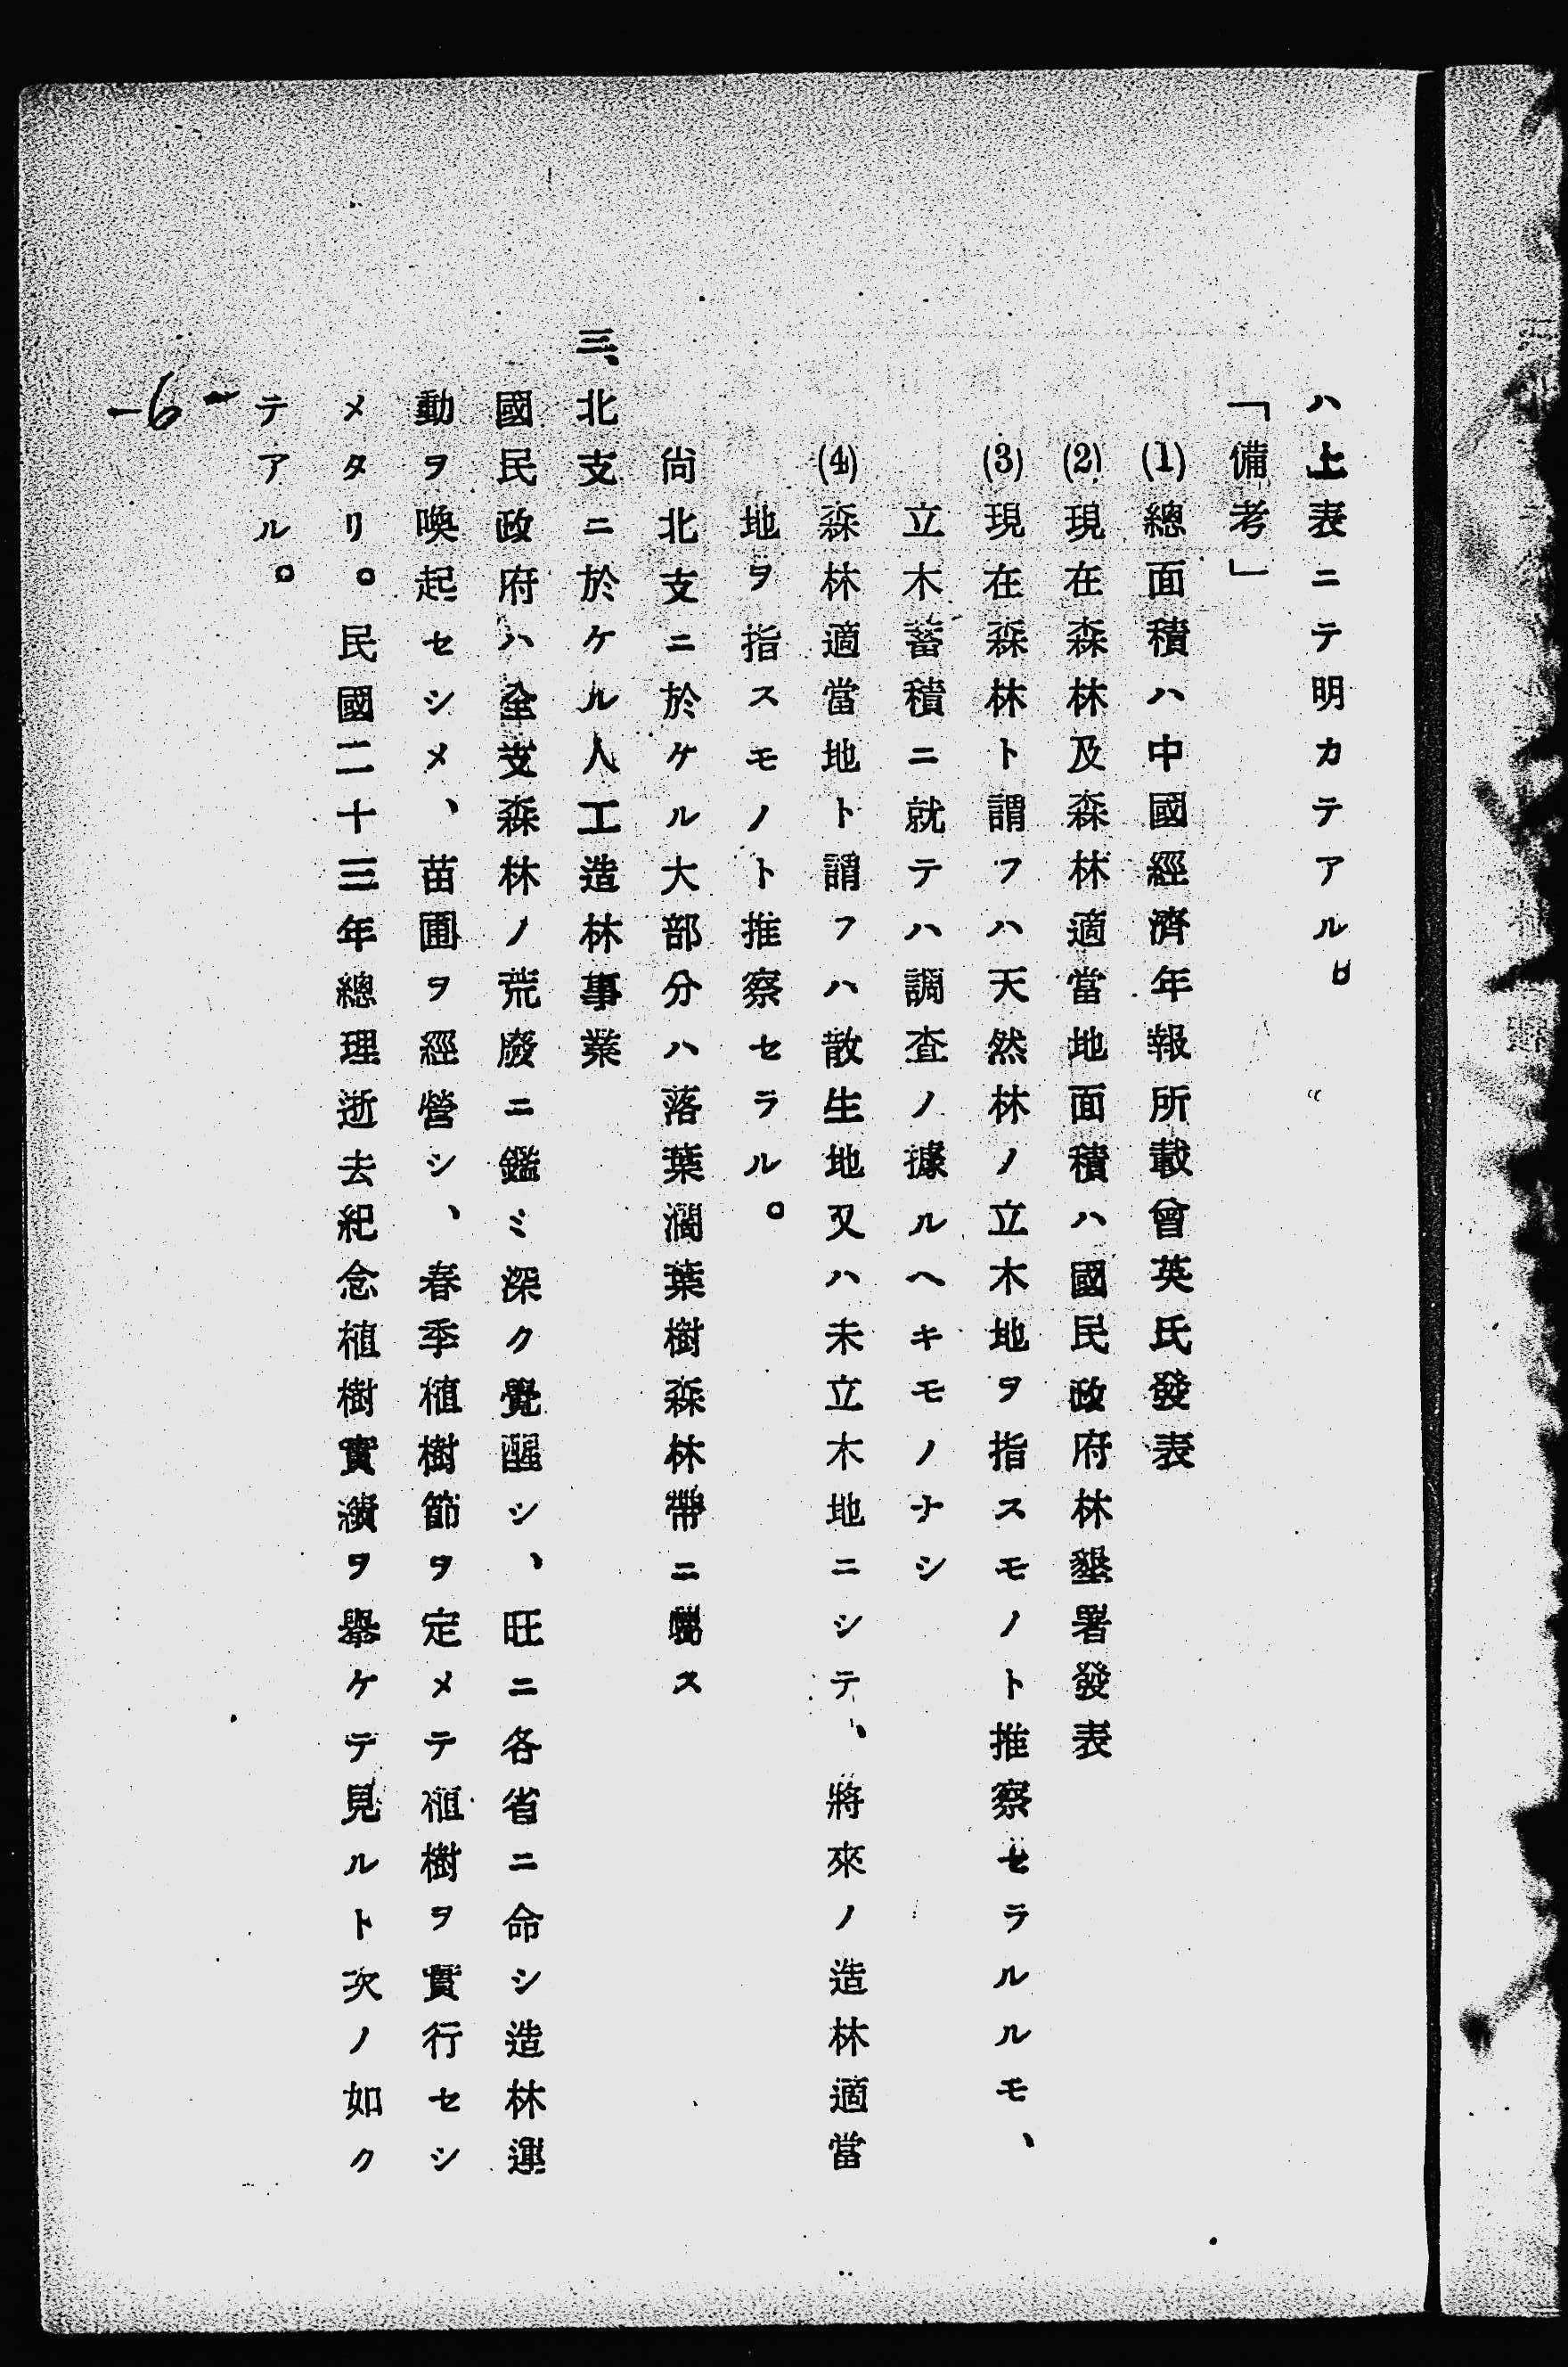 ハ上表ニテ明カテアル。
「備考」
(1)總面積ハ中國經濟年報所載曾英氏發表
(2)現在森林及森林適當地面積ハ國民政府林墾署發表
(3)現在森林ト謂フハ天然林ノ立木地ヲ指スモノト推察セラルルモ、
立木蓄積ニ就テハ調査ノ據ルヘキモノナシ
(4)森林適當地ト謂フハ散生地又ハ未立木地ニシテ、將來ノ造林適當
地ヲ指スモノト推察セラル。
尙北支ニ於ケル大部分ハ落葉濶葉樹森林帶ニ屬ス
三、北支ニ於ケル人工造林事業
國民政府ハ全支森林ノ荒廢ニ鑑ミ深ク覺醒シ、旺ニ各省ニ命シ造林運
動ヲ喚起セシメ、苗圃ヲ經營シ、春季植樹節ヲ定メテ植樹ヲ實行セシ
メタリ。民國二十三年總理逝去紀念植樹實績ヲ擧ケテ見ルト次ノ如ク
テアル。
-6-